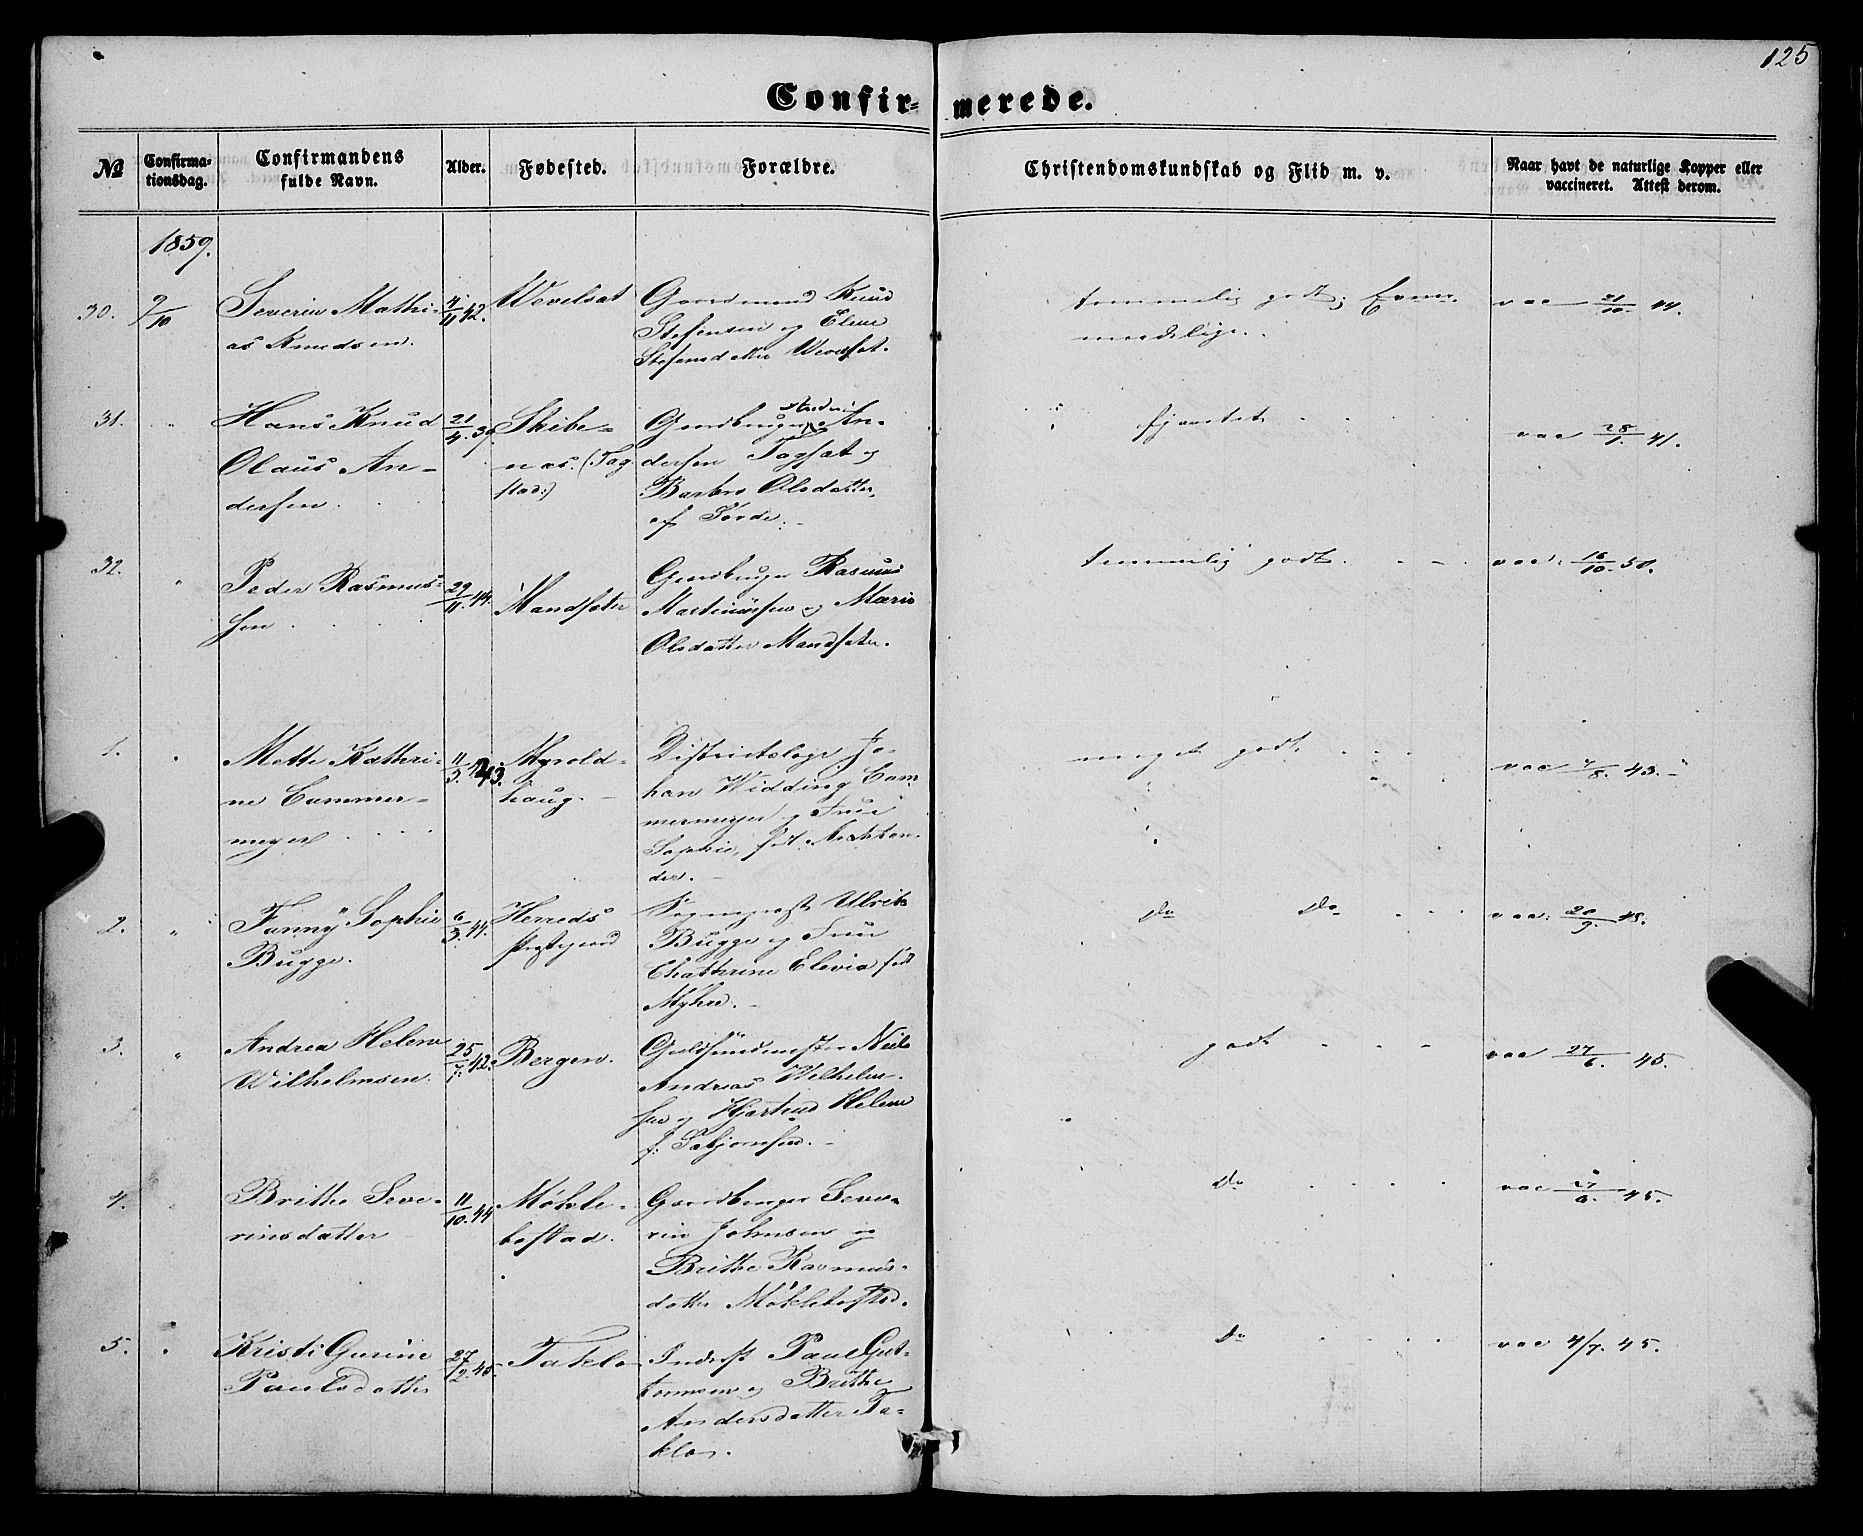 125
Confirmerede.
№
Confirmationsdag.
Confirmandens fulde Navn.
Alder.
Fødested.
Forældre.
Christendomskundskab og Flid m. v.
Naar havt de naturlige Kopper eller vaccineret. Attest derom.
1859.
30. 9/10
Severin Mathi-
as Knudsen.
4/11 42.
Wevelsat
Gaardmand Knud
Stefensen og Elene
Stefensdatter
temmelig godt; Evner
maadelige.
vac 21/10. 44.
31. "
Hans Knud
Olaus An-
dersen
21/4. 39
Skibe-
nas. (Tag-
stad:)
Gaardbruger Anders An-
dersen og
Barbro Olsdatter
af
vac 28/1. 41.
32. "
Peder Rasmus-
sen
29/11. 44
Mandsæter
Gaardbruger Rasmus
Martinussen og Marie
Olsdatter Mandsæter.
temmelig godt.
vac. 16/10. 50.
1. "
Mette Kathri-
ne Cammer-
meyer
11/3. 43.
Myrold-
haug.
Districtslæge Jo-
han Widding Cam-
mermeyer og Frue
Sophie, født
der.
meget godt
vac 7/8. 43.
2. "
Fanny Sophie
Bugge.
6/3. 44.
Herreds
præstegaard
Sognepræst Ulrik
Bugge og Frue
Chathrine Elevia født
Do Do
vac. 20/9. 45.
3. "
Andrea Helene
Wilhelmsen.
25/7. 42.
Bergen.
Guldsmedmester Niels
Andreas Wilhelm-
sen og Helene
godt
vac 27/6. 45.
4. "
Brithe Seve-
rinsdatter
11/10. 44
Møkle-
bostad.
Gaardbruger Seve-
rin Johnsen og
Brithe Rasmus-
datter Møklebostad.
Do
vac 27/6. 45.
5. "
Kristi Gurine
Paulsdatter
27/2. 45.
Taklo
Inderst Paul Gut-
tormsen og Brithe
Andersdatter Ta-
klo.
Do
vac 4/7. 45.